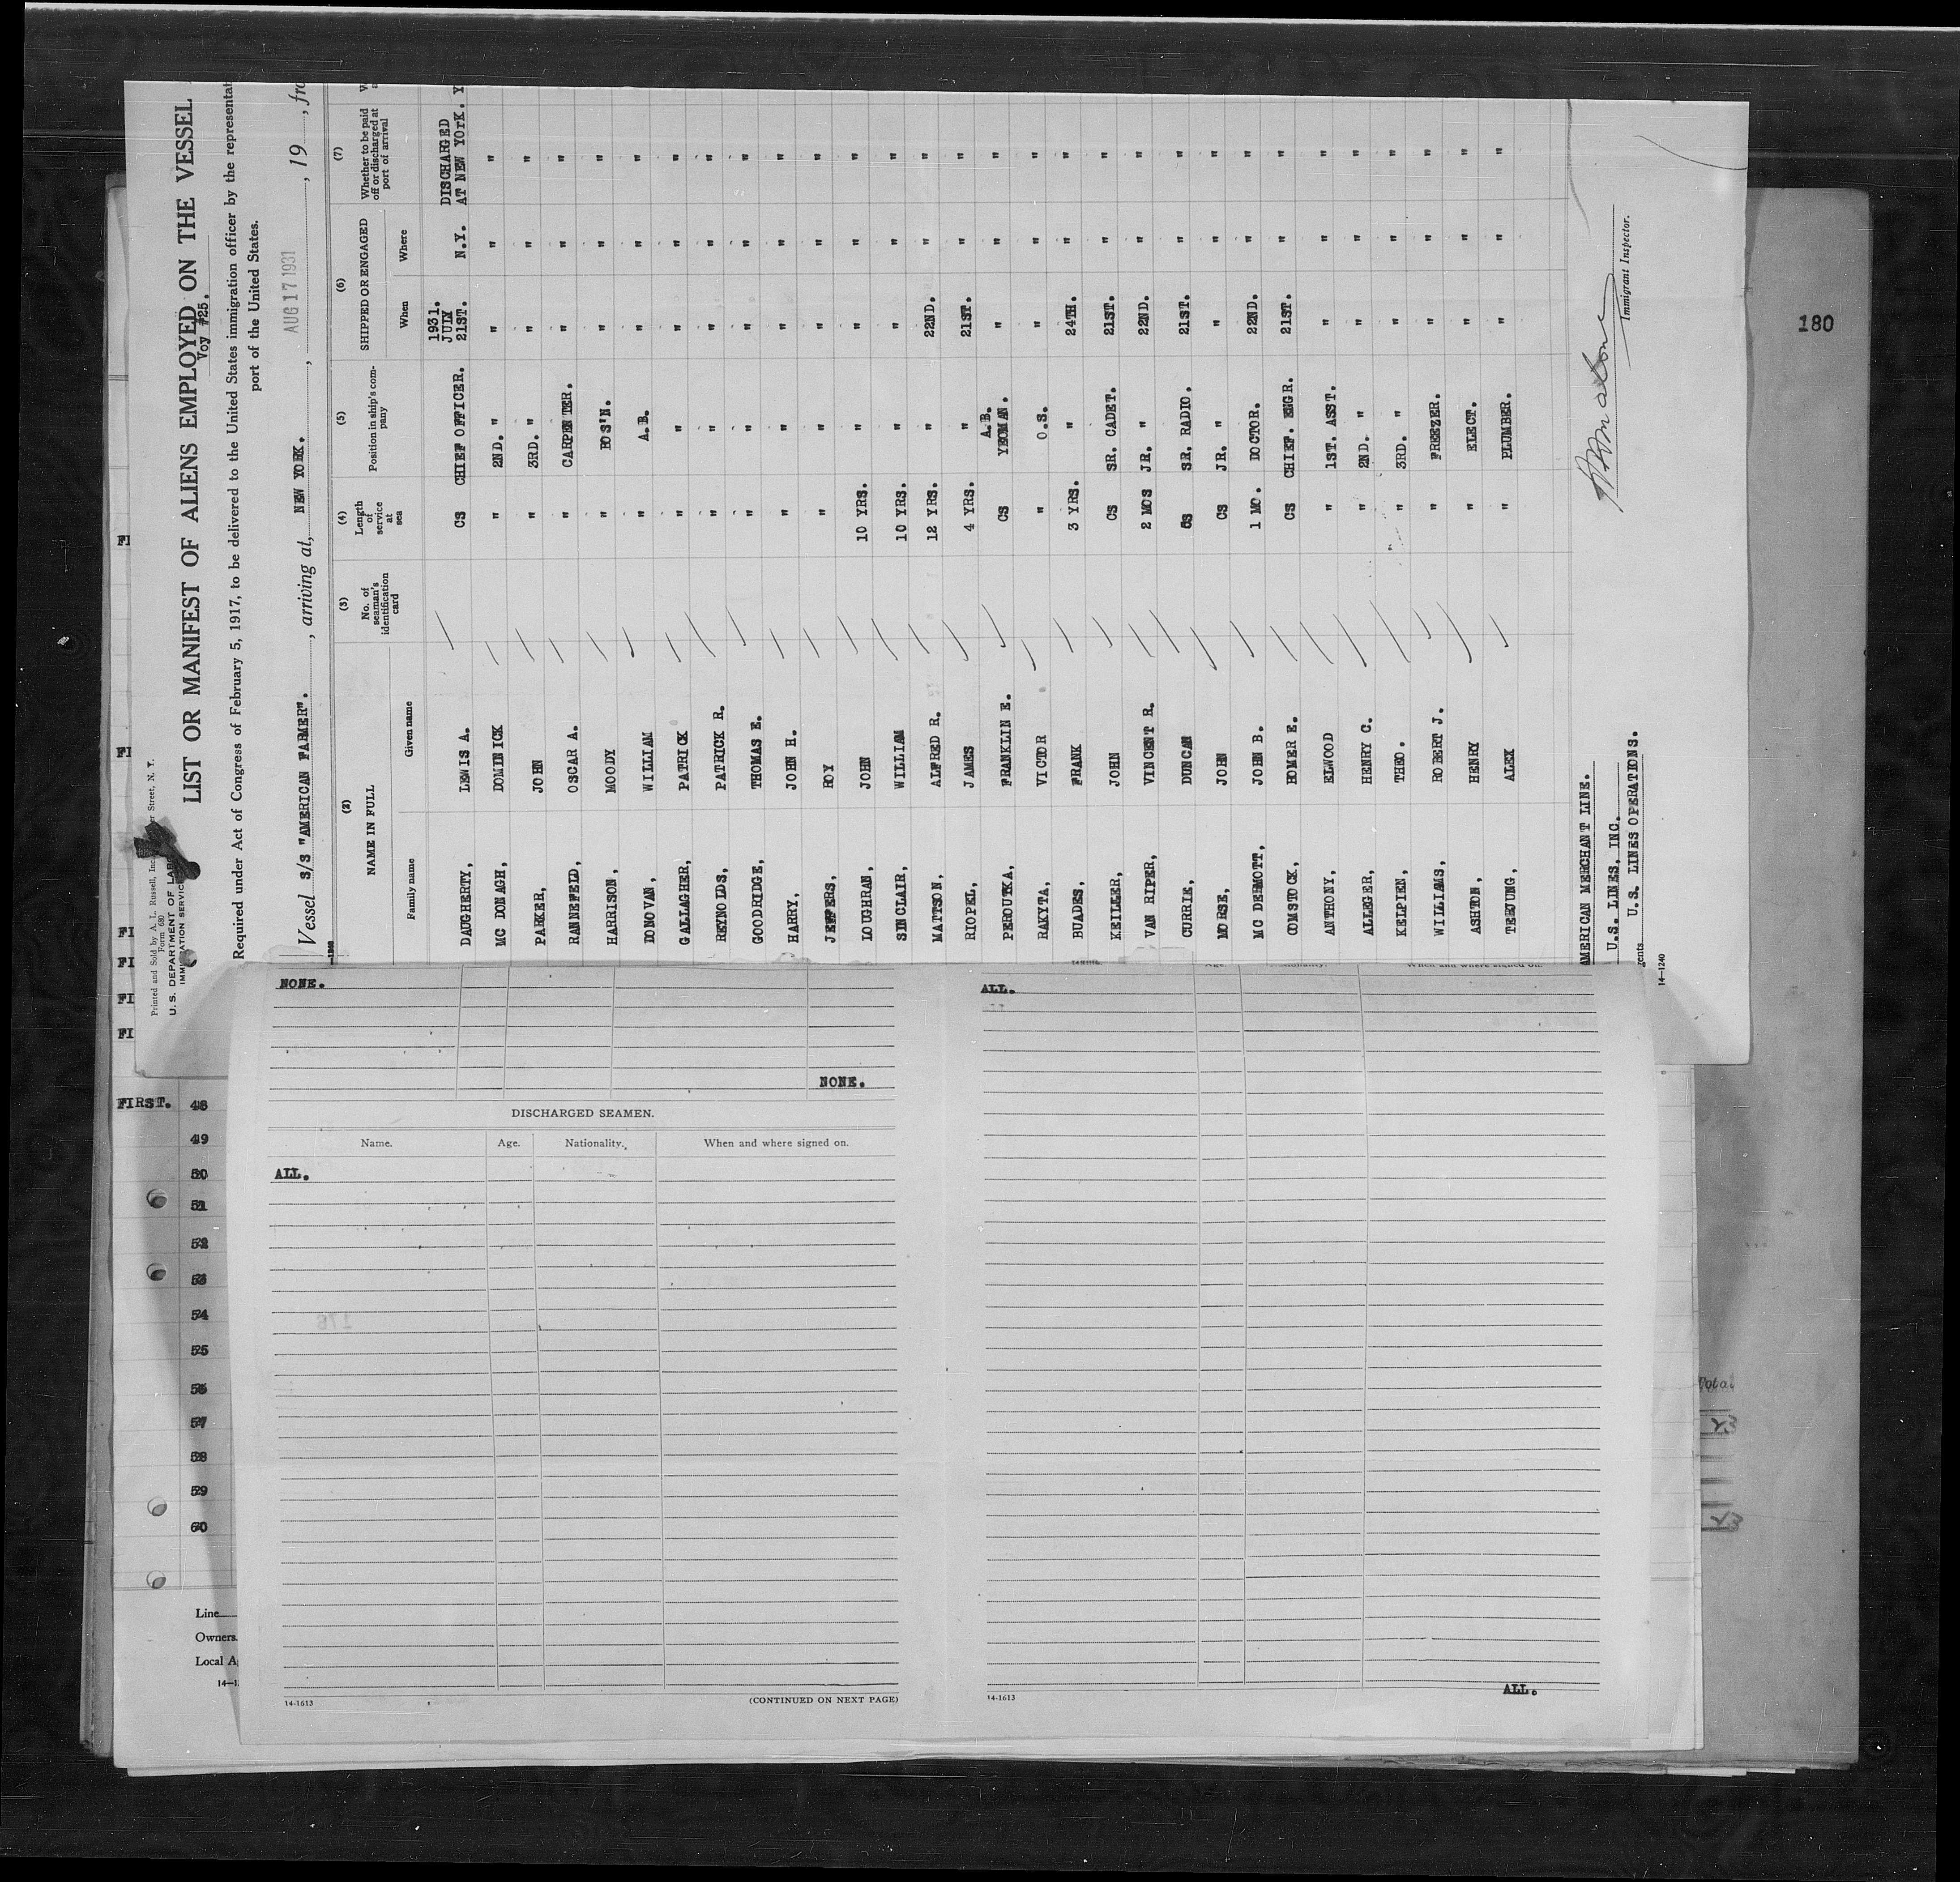 Printed and Sold by A. L. Russell, Inc. Street, N. Y.
Form 680
U. S. DEPARTMENT OF LABOR
IMMIGRATION SERVICE
LIST OR MANIFEST OF ALIENS EMPLOYED ON THE VESSEL
Voy #25.
Required under Act of Congress of February 5, 1917, to be delivered to the United States immigration officer by the representat
port of the United States.
Vessel S/S "AMERICAN FARMER"., arriving at, NEW YORK., AUG 17 1931, 19, fro
(2) (3) (4) (5) (6) (7)
NAME IN FULL No. of seaman's identification card Length of service at sea Position in ship's company SHIPPED OR ENGAGED Whether to be paid off or discharged at port of arrival
Family name Given name When Where
1931. DISCHARGED
JULY
DAUGHERTY, LEWIS A. CS CHIEF OFFICER. 21ST. N.Y. AT NEW YORK. Y
MC DONAGH, DOMINICK " 2ND. " " " "
PARKER, JOHN " 3RD. " " " "
RANNEFELD, OSCAR A. " CARPENTER. " " "
HARRISON, MOODY " BOS'N. " " "
DONOVAN, WILLIAM " A.B. " " "
GALLAGHER, PATRICK " " " " "
REYNOLDS, PATRICK R. " " " " "
GOODRIDGE, THOMAS E. " " " " "
HARRY, JOHN H. " " " " "
JEFFERS, ROY " " " " "
LOUGHRAN, JOHN 10 YRS. " " " "
SINCLAIR, WILLIAM 10 YRS. " " " "
MATTSON, ALFRED R. 12 YRS. " 22ND. " "
RIOPEL, JAMES 4 YRS. " 21ST. " "
PEROUTKA, FRANKLIN E. CS A.B. YEOMAN. " " "
RAKYTA, VICTOR " O.S. " " "
BUADES, FRANK 3 YRS. " 24TH. " "
KEILLER, JOHN CS SR. CADET. 21ST. " "
VAN RIPER, VINCENT R. 2 MOS JR. " 22ND. " "
CURRIE, DUNCAN CS SR. RADIO. 21ST. " "
MORSE, JOHN CS JR. " " " "
MC DERMOTT, JOHN B. 1 MO. DOCTOR. 22ND. " "
COMSTOCK, HOMER E. CS CHIEF. ENGR. 21ST. " "
ANTHONY, ELWOOD " 1ST. ASST. " " "
ALLEGER, HENRY C. " 2ND. " " " "
KELPIEN, THEO. " 3RD. " " " "
WILLIAMS, ROBERT J. " FREEZER. " " "
ASHTON, HENRY " ELECT. " " "
TERJUNG, ALEX " PLUMBER. " " "
AMERICAN MERCHANT LINE.
U.S. LINES, INC.
gents U.S. LINES OPERATIONS.
Immigrant Inspector.
14-1240
180
FI
FI
FI
FI
FI
FI
FIRST. 48
49
50
51
52
53
54
55
56
57
58
59
60
Line
Owners
Local A
14-1
NONE.
NONE.
DISCHARGED SEAMEN.
Name. Age. Nationality. When and where signed on.
ALL.
176
14-1613 (CONTINUED ON NEXT PAGE)
Age. When and where signed on.
ALL.
14-1613
ALL.
Total
23
23